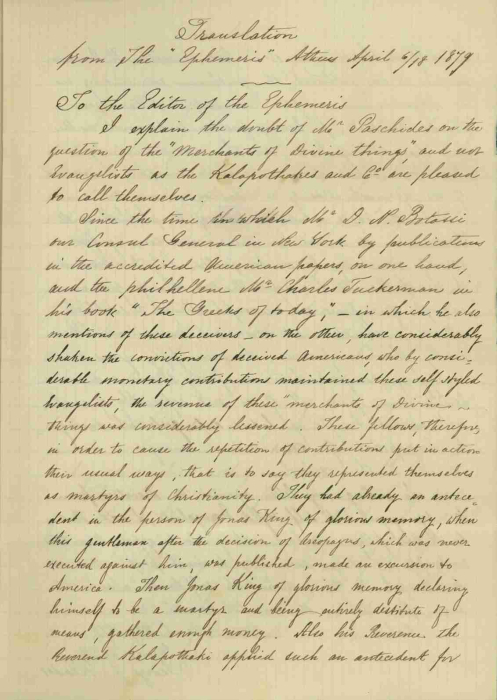 Translation
from The "Ephemeris" Athens April 6/18 1879
To the Editor of the Ephemeris
I explain the doubt of Mr Paschides on the
question of the "Merchants of Divine things", and not
Evangelists as the Kalapothakes and Co are pleased
to call themselves.
Since the time in which Mr D. N. Botassi
our Consul General in New York by publications
in the accredited American papers, on one hand,
and the philhellene Mr Charles Tuckerman in
his book "The Greeks of today", – in which he also
mentions of these deceivers – on the other, have considerably
shaken the convictions of deceived Americans, who by consi-
derable monetary contributions maintained these self styled
Evangelists, the revenue of these "merchants of Divine
things was considerably lessened. These fellows, therefore,
in order to cause the repetition of contributions put in action
their usual ways, that is to say they represented themselves
as martyrs of Christianity. They had already an antece
dent in the person of Jonas King of glorious memory, when
this gentleman after the decision of Areopagus, which was never
executed against him, was published, made an excursion to
America. Then Jonas King of glorious memory declaring
himself to be a martyr and being entirely destitute of
means, gathered enough money. Also his Reverence the
Reverend Kalapothaki applied such an antecedent for